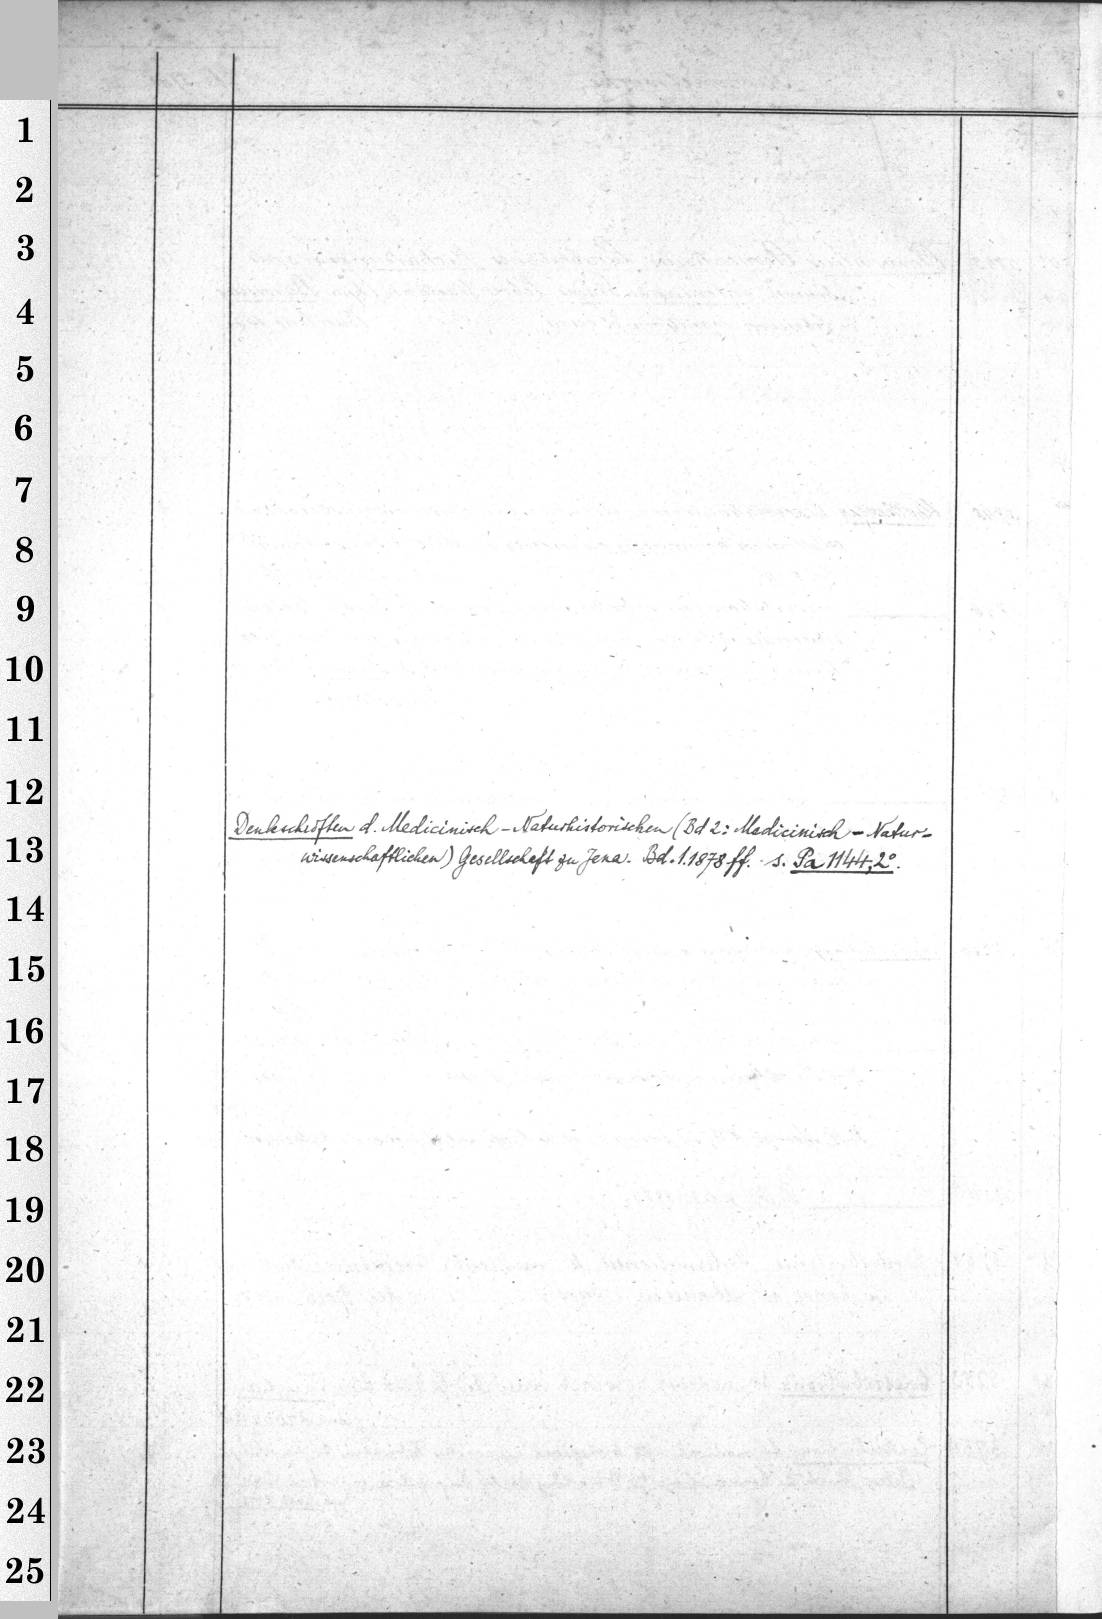 1
2
3
4
5
6
7
8
9
10
11
12
Denkschriften d. Medicinisch-Naturhistorischen (Bd 2: Medicinisch-Natur-
13
wissenschaftlichen) Gesellschaft zu Jena. Bd. 1. 1878 ff. s. Pa 1144, 2°.
14
15
16
17
18
19
20
21
22
23
24
25